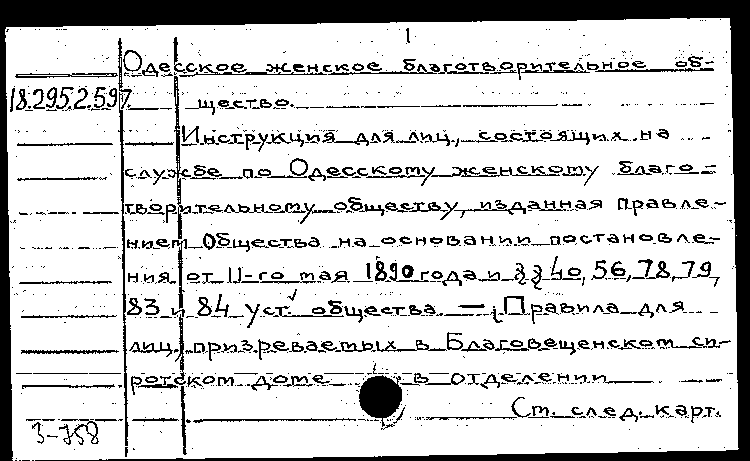 1
Одесское женское благотворительное об-
18.295.2.597 щество.
Инструкция для лиц, состоящих на
службе по Одесскому женскому благо-
творительному обществу, изданная правле-
нием Общества на основании постановле-
ния от 11-го мая 1890 года и §§ 40, 56, 78, 79,
83 и 84 уст. общества. — Правила для
лиц, призреваемых в Благовещенском си-
ротском доме в отделении
См. след. карт.
3-758